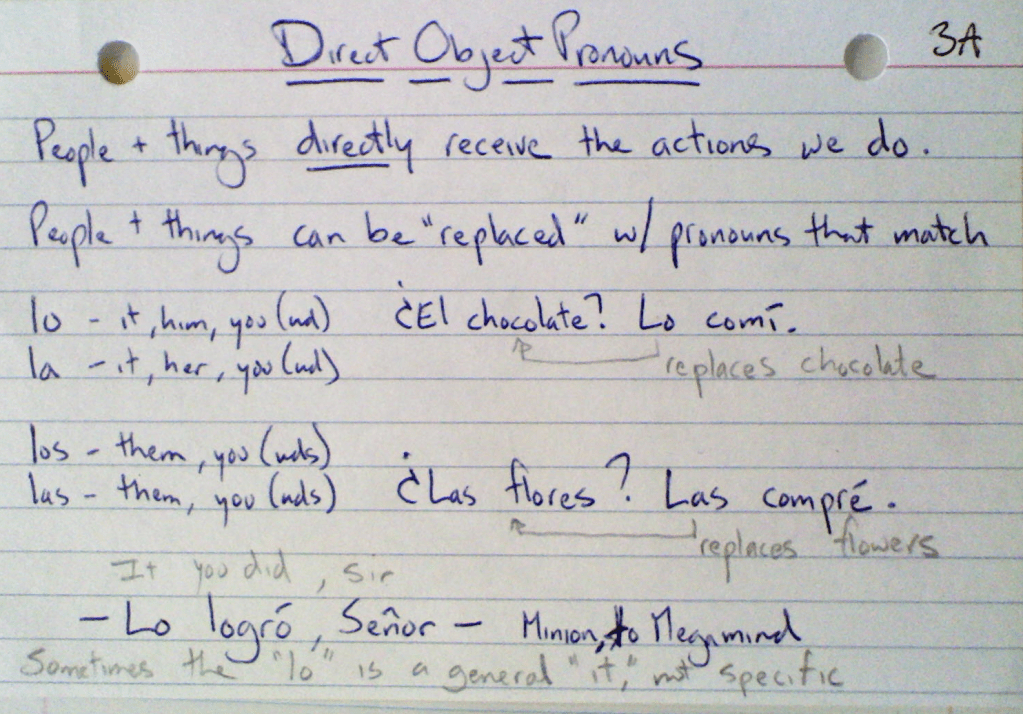 Direct Object Pronouns 3A
People + things directly receive the actions we do.
People + things can be "replaced" w/ pronouns that match
lo - it, him, you (ud) ¿El chocolate? Lo comí.
la - it, her, you (ud) replaces chocolate
los - them, you (uds)
las - them, you (uds) ¿Las flores? Las compré.
replaces flowers
It you did, sir
- Lo logró, Señor - Minion, to Megamind
Sometimes the "lo" is a general "it," not specific